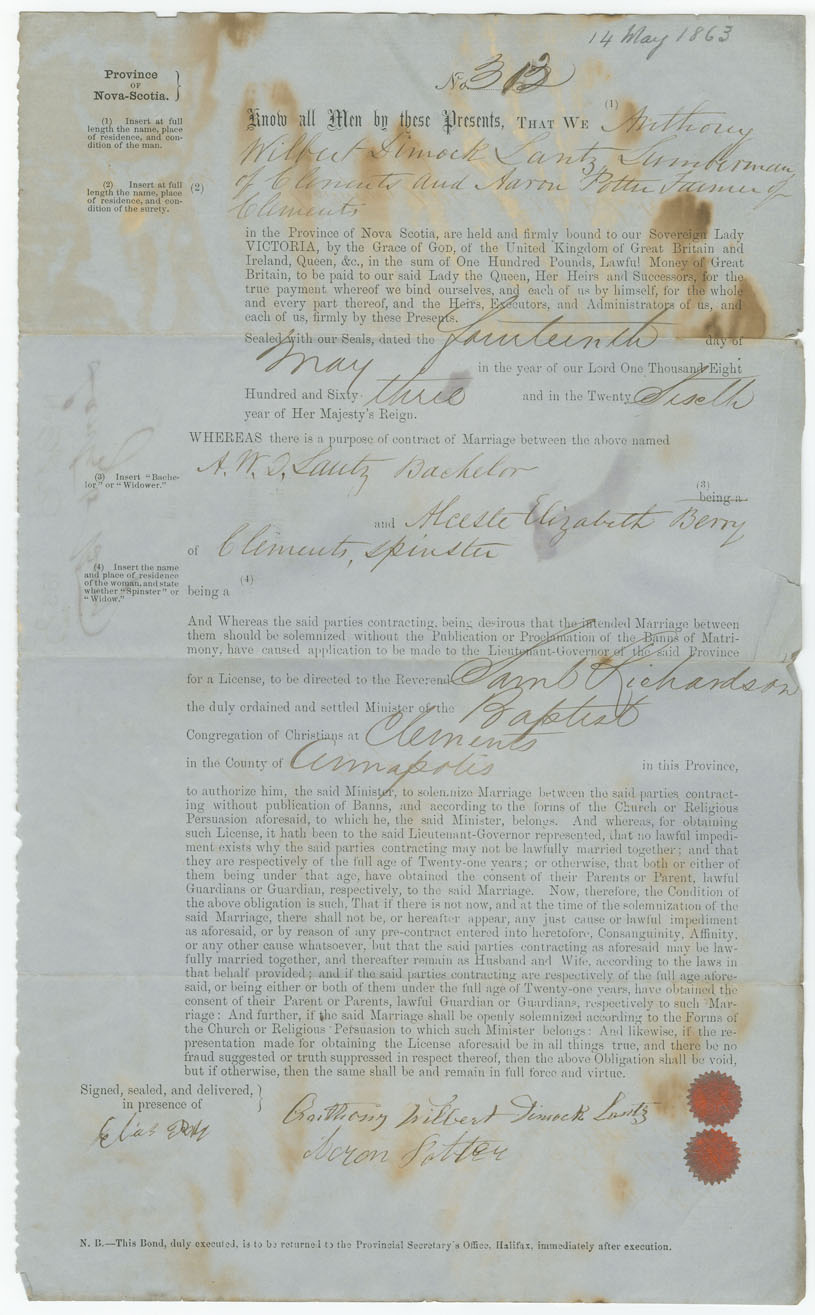 14 May 1863
Province
OF
Nova-Scotia.
No. 312
(1) Insert at full
length the name, place
of residence, and con-
dition of the man.
Know all Men by these Presents, THAT WE (1) Anthony
Wilbert Dimock Lantz, Lumberman,
(2) Insert at full
length the name, place
of residence, and con-
dition of the surety.
(2) of Clements and Aaron Potter Farmer of
Clements
in the Province of Nova Scotia, are held and firmly bound to our Sovereign Lady
VICTORIA, by the Grace of GOD, of the United Kingdom of Great Britain and
Ireland, Queen, &c., in the sum of One Hundred Pounds, Lawful Money of Great
Britain, to be paid to our said Lady the Queen, Her Heirs and Successors, for the
true payment whereof we bind ourselves, and each of us by himself, for the whole
and every part thereof, and the Heirs, Executors, and Administrators of us, and
each of us, firmly by these Presents.
Sealed with our Seals, dated the fourteenth day of
May in the year of our Lord One Thousand Eight
Hundred and Sixty-three and in the Twenty Sixth
year of Her Majesty's Reign.
WHEREAS there is a purpose of contract of Marriage between the above named
A. W. D. Lantz Bachelor
(3) Insert "Bache-
lor" or "Widower."
(3)
being a
and Alceste Elizabeth Berry
of Clements, spinster
(4) Insert the name
and place of residence
of the woman, and state
whether "Spinster" or
"Widow."
(4)
being a
And Whereas the said parties contracting, being desirous that the intended Marriage between
them should be solemnized without the Publication or Proclamation of the Banns of Matri-
mony, have caused application to be made to the Lieutenant-Governor of the said Province
for a License, to be directed to the Reverend Saml Richardson
the duly ordained and settled Minister of the Baptist
Congregation of Christians at Clements
in the County of Annapolis in this Province,
to authorize him, the said Minister, to solemnize Marriage between the said parties contract-
ing without publication of Banns, and according to the forms of the Church or Religious
Persuasion aforesaid, to which he, the said Minister, belongs. And whereas, for obtaining
such License, it hath been to the said Lieutenant-Governor represented, that no lawful impedi-
ment exists why the said parties contracting may not be lawfully married together; and that
they are respectively of the full age of Twenty-one years; or otherwise, that both or either of
them being under that age, have obtained the consent of their Parents or Parent, lawful
Guardians or Guardian, respectively, to the said Marriage. Now, therefore, the Condition of
the above obligation is such, That if there is not now, and at the time of the solemnization of the
said Marriage, there shall not be, or hereafter appear, any just cause or lawful impediment
as aforesaid, or by reason of any pre-contract entered into heretofore, Consanguinity, Affinity,
or any other cause whatsoever, but that the said parties contracting as aforesaid may be law-
fully married together, and thereafter remain as Husband and Wife, according to the laws in
that behalf provided; and if the said parties contracting are respectively of the full age afore-
said, or being either or both of them under the full age of Twenty-one years, have obtained the
consent of their Parent or Parents, lawful Guardian or Guardians, respectively to such Mar-
riage: And further, if the said Marriage shall be openly solemnized according to the Forms of
the Church or Religious Persuasion to which such Minister belongs: And likewise, if the re-
presentation made for obtaining the License aforesaid be in all things true, and there be no
fraud suggested or truth suppressed in respect thereof, then the above Obligation shall be void,
but if otherwise, then the same shall be and remain in full force and virtue.
Signed, sealed, and delivered,
in presence of
Anthony Wilbert Dimock Lantz
Aeron Potter
N. B.—This Bond, duly executed, is to be returned to the Provincial Secretary's Office, Halifax, immediately after execution.